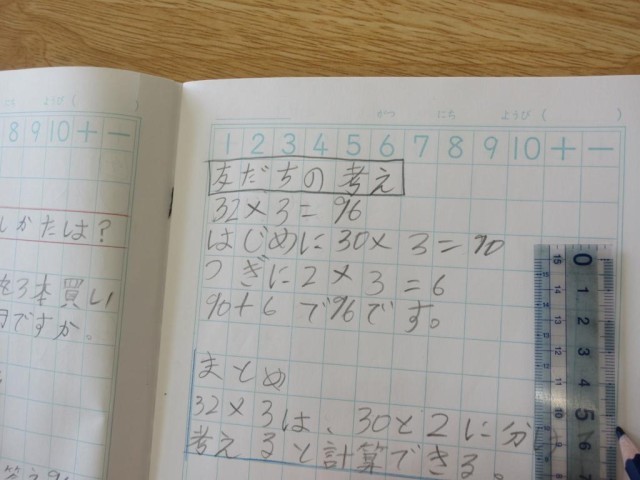 にち ようび ( )
8 9 10 + −
しかたは?
を3本買い
円ですか。
がつ にち ようび ( )
1 2 3 4 5 6 7 8 9 10 + −
友だちの考え
32×3=96
はじめに30×3=90
つぎに2×3=6
90+6で96です。
まとめ
32×3は、30と2に分け
考えると計算できる。
0
1
2
3
4
5
6
7